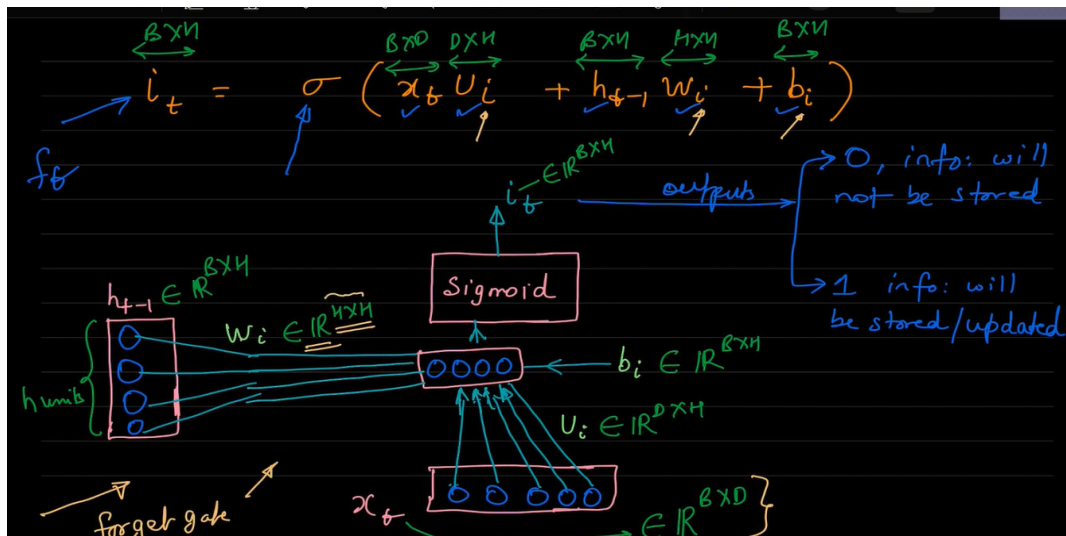 B×H B×D D×H B×H H×H B×H
i_t = σ ( x_t U_i + h_{t-1} W_i + b_i )
f_t
i_t ∈ ℝ^{B×H}
outputs
0, info: will
not be stored
1 info: will
be stored/updated
Sigmoid
h_{t-1} ∈ ℝ^{B×H}
W_i ∈ ℝ^{H×H}
b_i ∈ ℝ^{B×H}
h units
U_i ∈ ℝ^{D×H}
forget gate
x_t ∈ ℝ^{B×D}